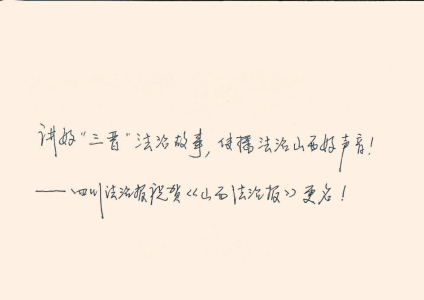 讲好“三晋”法治故事，传播法治山西好声音！
——四川法治报祝贺《山西法治报》更名！